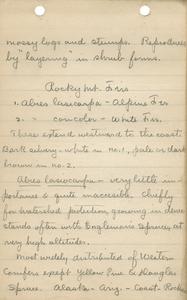 mossy logs and stumps. Reproduces
by "layering" in shrub forms.
Rocky Mt. Firs
1. Abies lasiocarpa - Alpine Fir
2. " concolor - White Fir.
These extend westward to the coast.
Bark silvery-white in no. 1, pale or dark
brown in no. 2.
Abies lasiocarpa - very little im-
portance & quite inaccessible. Chiefly
for watershed protection, growing in dense
stands often with Englemann spruces at
very high altitudes.
Most widely distributed of Western
Conifers except Yellow Pine & Douglas
Spruce. Alaska - Ariz. - Coast - Rockies